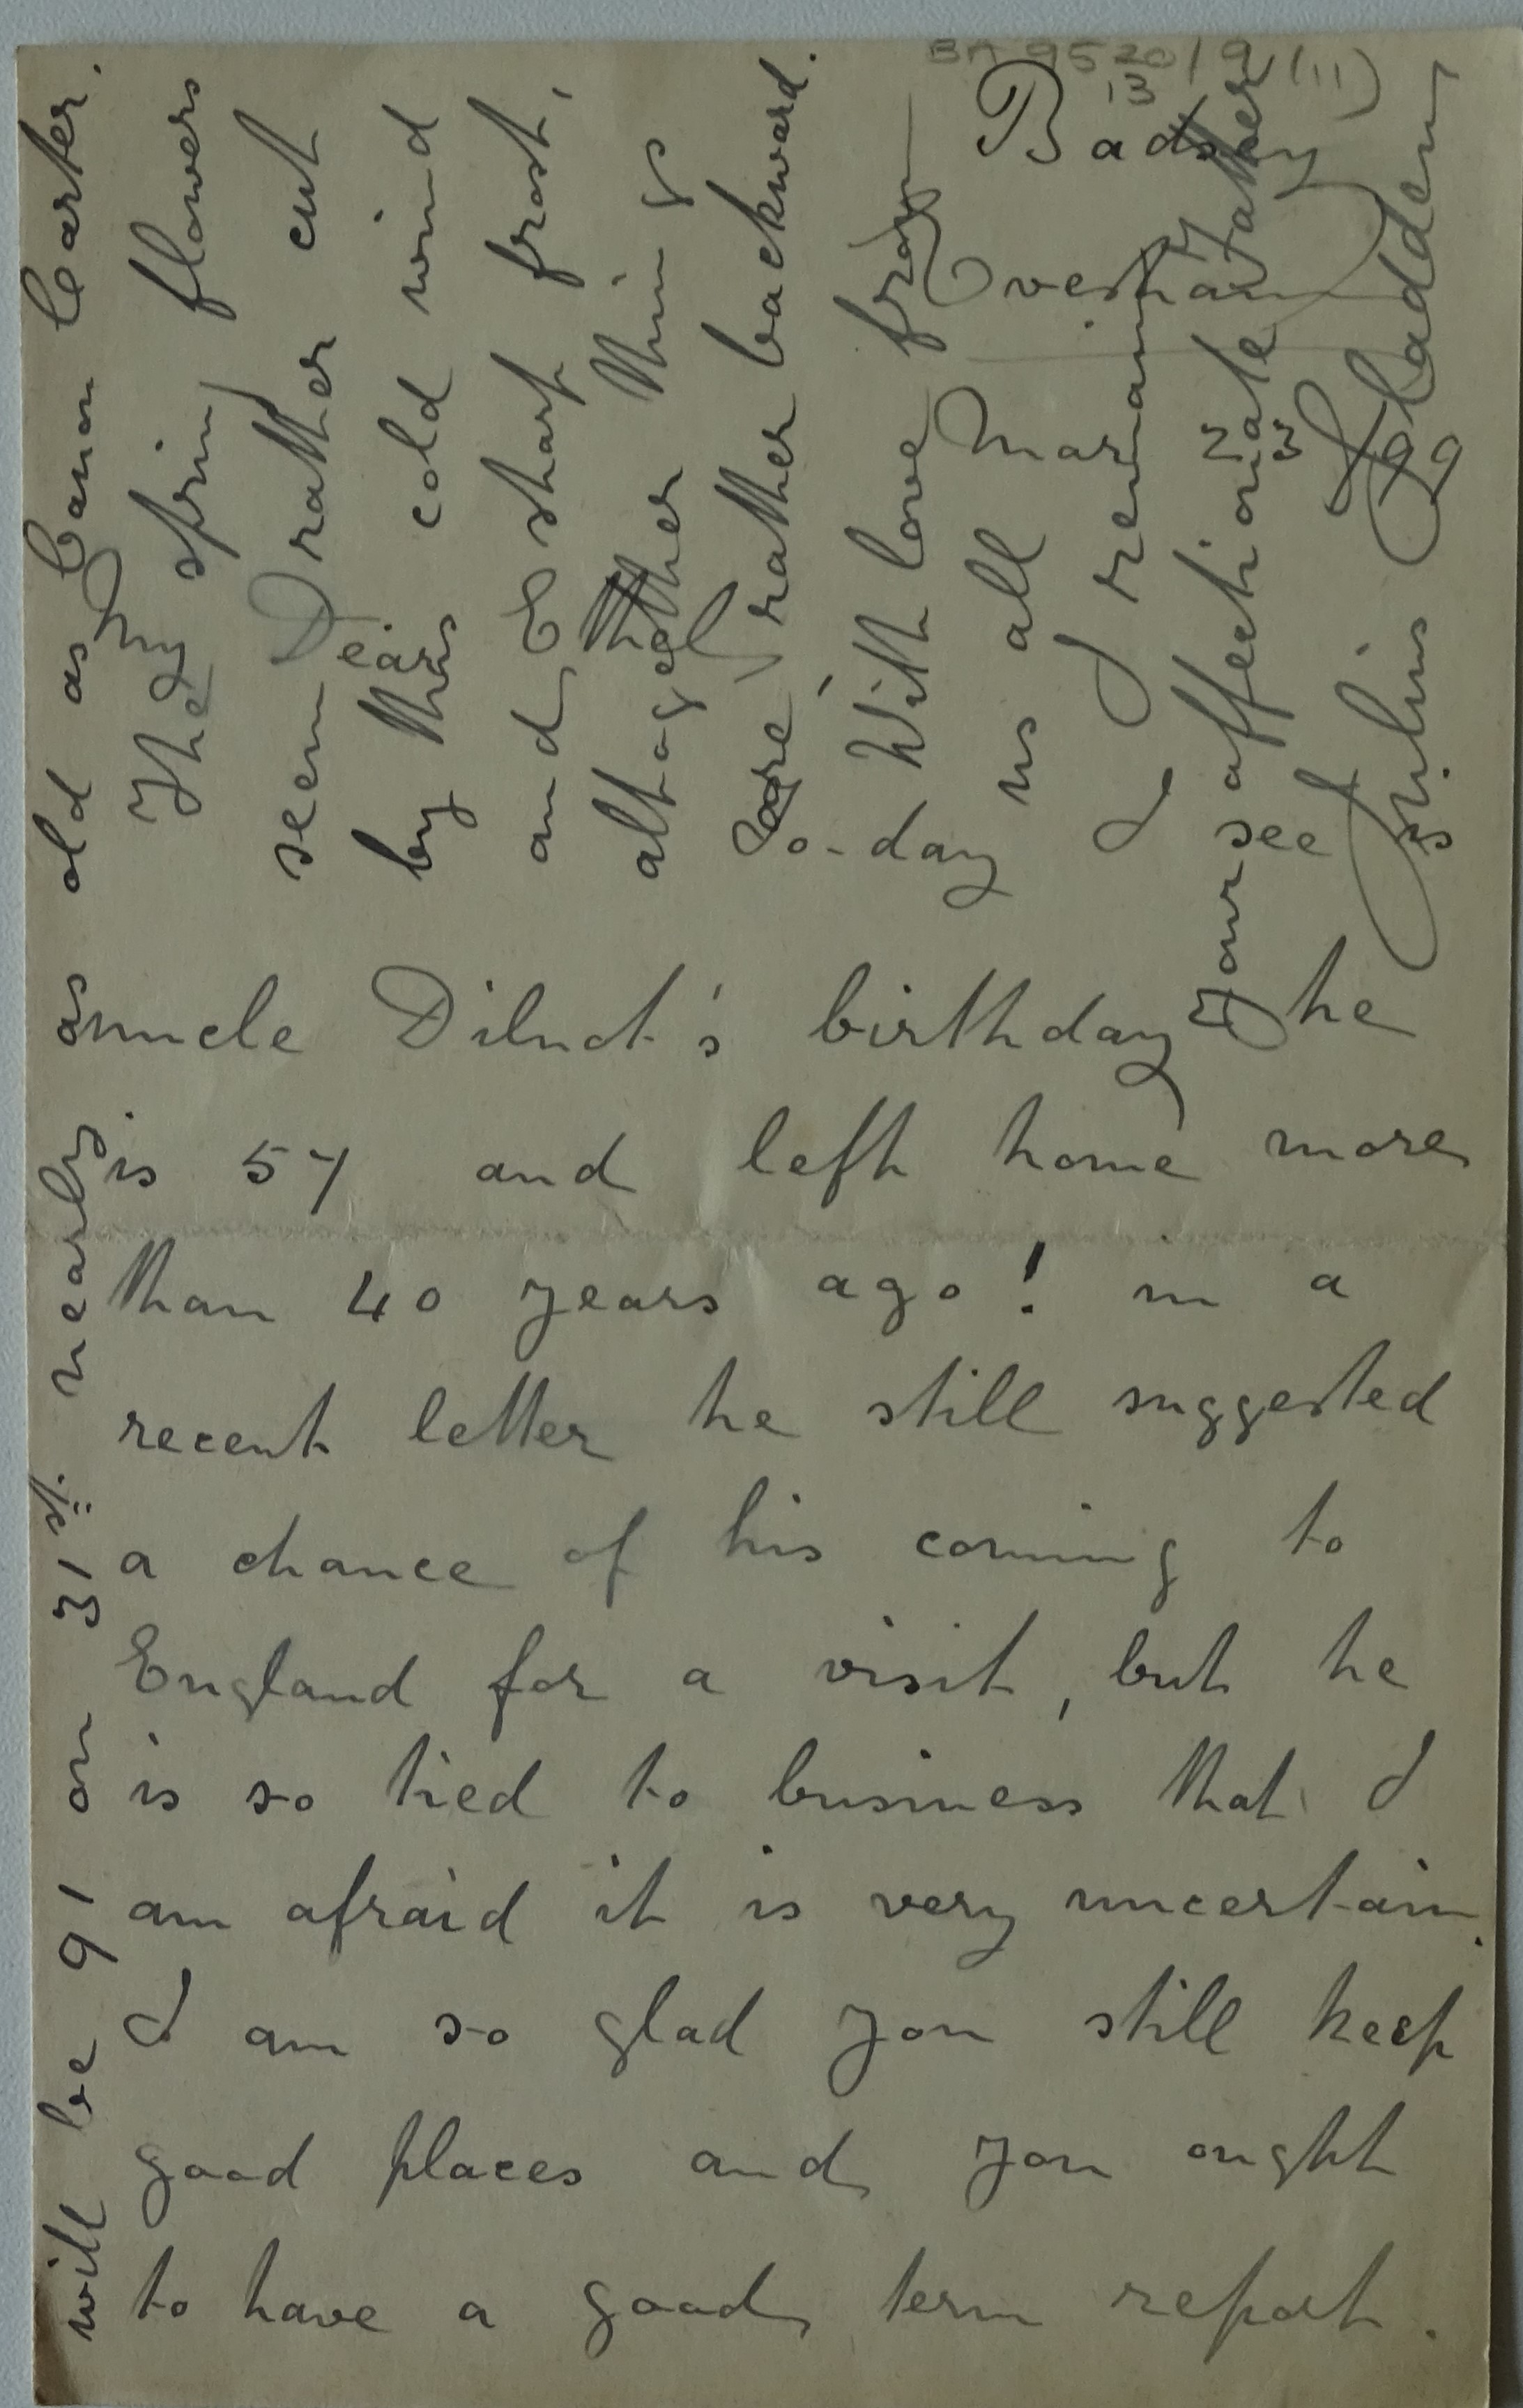 BA 9520/9(11)
13
Badsey
Evesham
Mar 23 99
My Dear Ethel
To-day I see is
uncle Dilnot's birthday, he
is 57 and left home more
than 40 years ago! in a
recent letter he still suggested
a chance of his coming to
England for a visit, but he
is so tied to business that I
am afraid it is very uncertain.
I am so glad you still keep
good places and you ought
to have a good term report.
will be 91 on 31st. nearly as old as Canon Carter.
The spring flowers
seem rather cut
by this cold wind
and sharp frost,
altogether things
are rather backward.
With love from
us all
I remain
Your affectionate Father
Julius Sladden